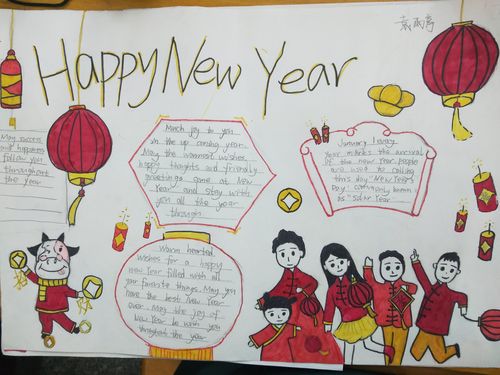 HAPPY NEW YEAR
May success
and happiness
follow you
throughout
the year
Much joy to you
in the up coming year.
May the warmest wishes,
happy thoughts and friendly
greetings come at New
Year and stay with
you all the year
through.
January 1 every
Year marks the arrival
of the new year. people
are used to calling
this day "New Year's
Day" commonly known
as "solar Year
Warm hearted
wishes for a happy
new Year filled with all
your favorite things. May you
have the best New Year
ever. May the joy of
New Year be with you
throughout the year